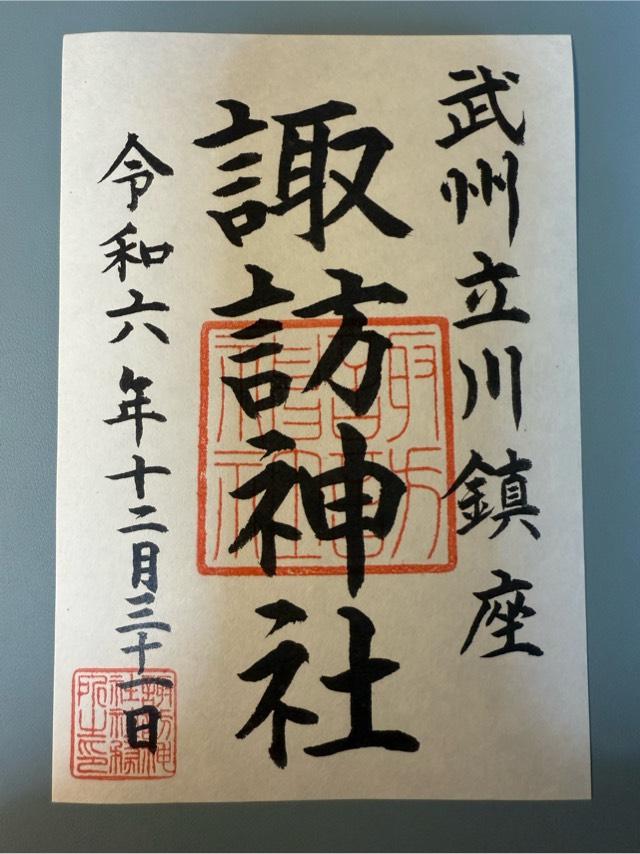 武州立川鎮座
諏訪神社
令和六年十二月三十一日